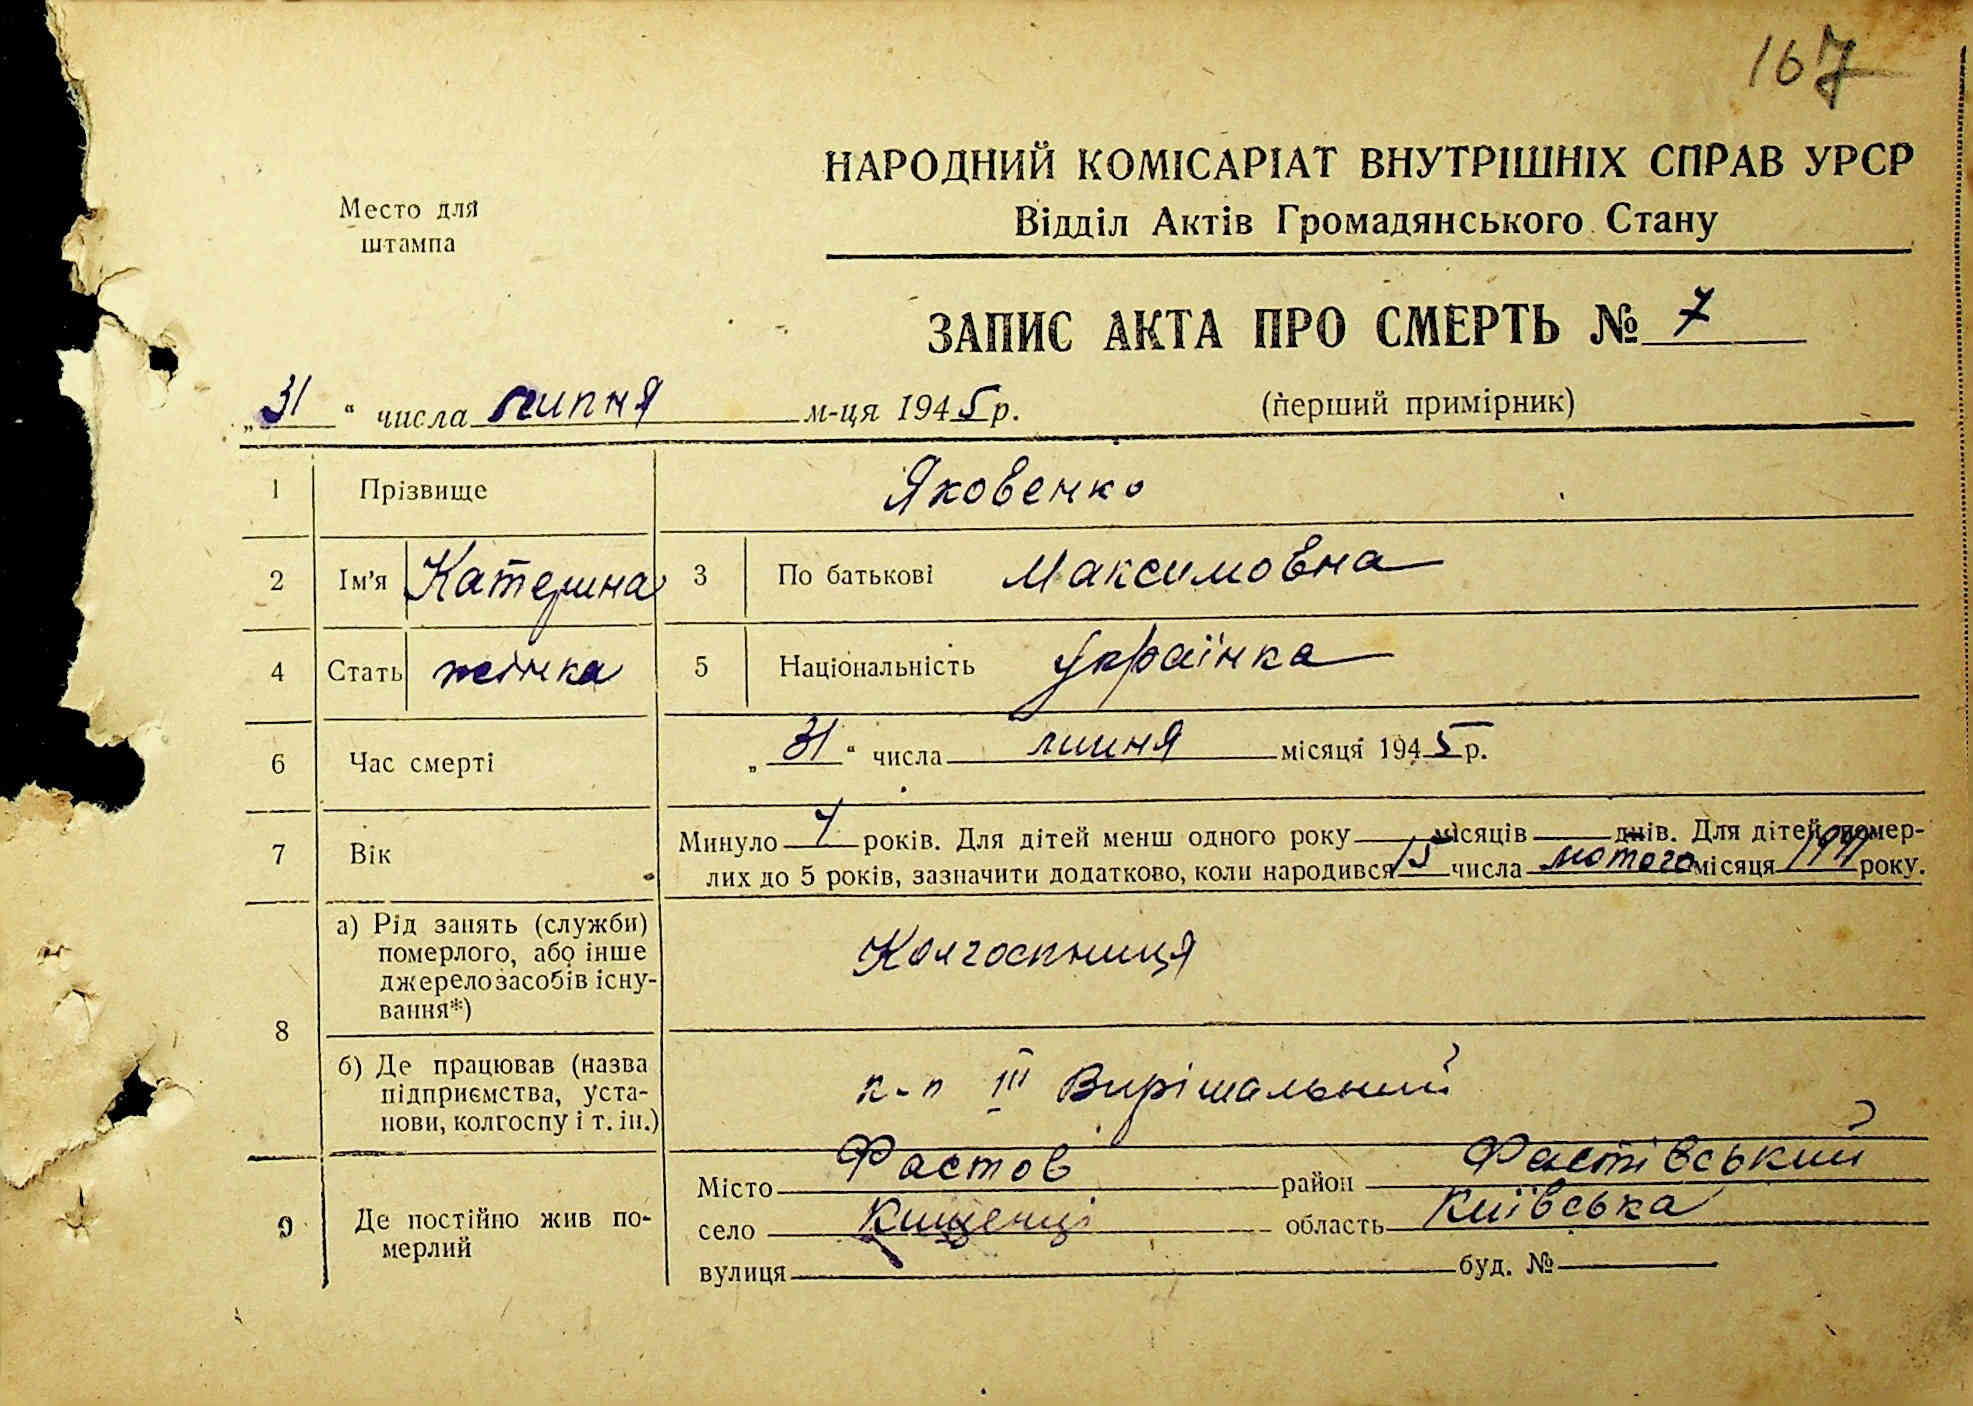 167
НАРОДНИЙ КОМІСАРІАТ ВНУТРІШНІХ СПРАВ УРСР
Место для штампа
Відділ Актів Громадянського Стану
ЗАПИС АКТА ПРО СМЕРТЬ № 7
„31“ числа липня м-ця 1945 р.
(перший примірник)
1 Прізвище Яковенко
2 Ім'я Катерина 3 По батькові Максимовна
4 Стать жінка 5 Національність українка
6 Час смерті „31“ числа липня місяця 1945 р.
7 Вік Минуло 4 років. Для дітей менш одного року місяців днів. Для дітей, помер-
лих до 5 років, зазначити додатково, коли народився 15 числа лютого місяця 1941 року.
8 а) Рід занять (служби)
померлого, або інше
джерело засобів існу-
вання*)
Колгоспниця
б) Де працював (назва
підприємства, уста-
нови, колгоспу і т. ін.)
к-п III Вирішальний
9 Де постійно жив по-
мерлий
Місто Фастов район Фастівський
село область Київська
вулиця буд. №